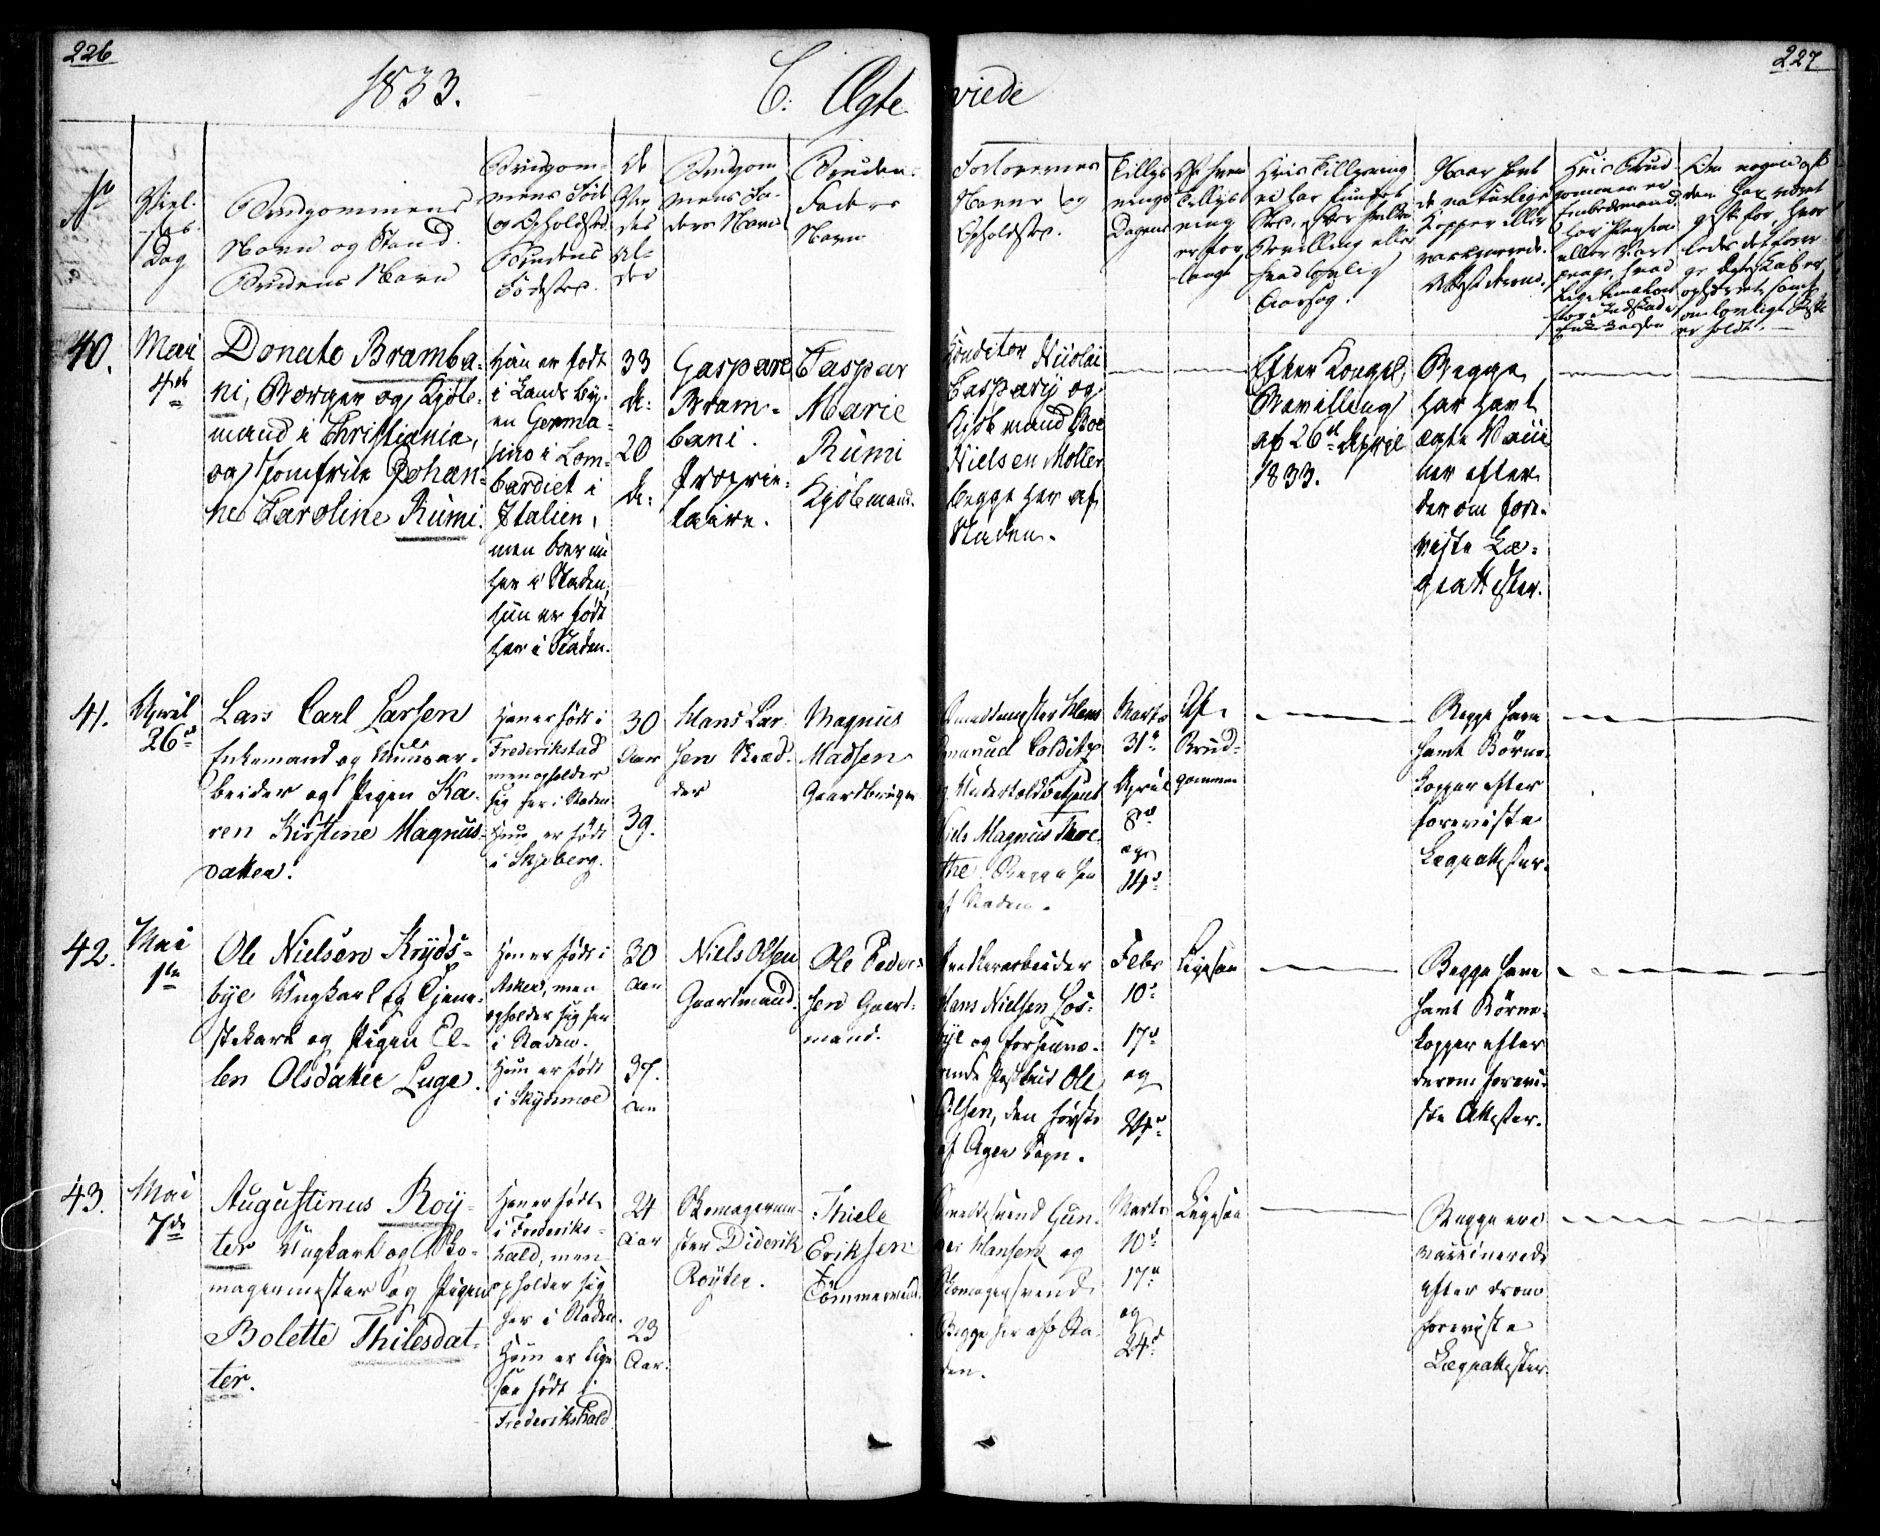 226
227
1833.
C. Ægte
viede
No
Viel-
ses
Dag
Brudgommens
Navn og Stand.
Brudens Navn
Brudgom-
mens Føde
og Opholdsted.
Brudens
Fødested.
De
Vie
des
Al-
der
Brudgom
mens Fa-
ders Navn
Brudens
Faders
Navn
Forlovernes
Navne og
Opholdsted.
Tillys
nings
Dagene
Af hvem
Tillys
ning
er for
langt
Hvis Tillysning
ei har fundet
Sted, efter hvilken
Bevilling eller
hvad lovlig
Aarsag.
Naar havt
de naturlige
Kopper eller
vaccinerede.
Attesterne.
40.
Mai
4de
Donato Bramba-
ni, Borger og Kjøb-
mand i Christiania,
og Jomfrue Johan-
ne Caroline Rumi.
Han er født
i Lands By-
en Germa-
sino i Lom-
bardiet i
Italien,
men boer nu
her i Staden,
hun er født
her i Staden.
33
20
Gaspare
Bram-
bani.
Proprie-
taire.
Caspar
Marie
Rumi
Kjøbmand.
Conditor Nicolai
Caspary og
Kjøbmand
Nielsen Møller
begge her af
Staden.
Efter Kongel.
Bevilling
af 26de April
1833.
Begge
har havt
ægte Vacci
ner efter
derom fore-
viste Læ-
geattester.
41.
April
26de
Lars Carl Larsen
Enkemand og
beider og Pigen Ka-
ren Kirstine Magnus-
datter.
Han er født i
Frederikstad
men opholder
sig her i Staden
Hun er født
i Skjeberg.
30
Aar
39.
Hans Lar-
sen
der
Magnus
Madsen
Gaardbruger
Hans
Colditz
Niels Magnus Thre-
the. Begge her
af Staden.
Marts
31te
April
8de
og
14de
Af
Brud-
gommen
Begge have
havt Børne-
kopper efter
foreviste
Lægeattester.
42.
Mai
1te
Ole Nielsen Kryds-
bye Ungkarl og Tjene-
stekarl og Pigen El-
len Olsdatter Luge.
Han er født i
Asker, men
opholder sig her
i Staden.
Hun er født
i Skydsmoe
30
Aar
37.
Aar
Niels Olsen
Gaardmand.
Ole Peder-
sen Gaard-
mand.
Hans Nielsen Los-
bye og forhenvæ-
rende Postbud Ole
Olsen, den første
af Agers Sogn.
Febr
10de
17de
og
24de
Ligesaa
Begge have
havt Børne-
kopper efter
derom forevi-
ste Attester.
43.
Mai
7de
Augustinus Roy-
ter Ungkarl og Sko-
magermester og Pigen
Bolette Thilesdat-
ter.
Han er født
i Frederiks-
hald, men
opholder sig
her i Staden.
Hun er lige
saa født i
Frederikshald
24
Aar
23
Aar.
Skomagerme-
ster Diderik
Røyter.
Thiele
Eriksen
Tømmermand.
Gun-
der Hansen og
Skomagersvend
Begge her af Sta-
den.
Marts
10de
17de
og
24de
Ligesaa
Begge ere
vaccinerede
efter derom
foreviste
Lægeattester.